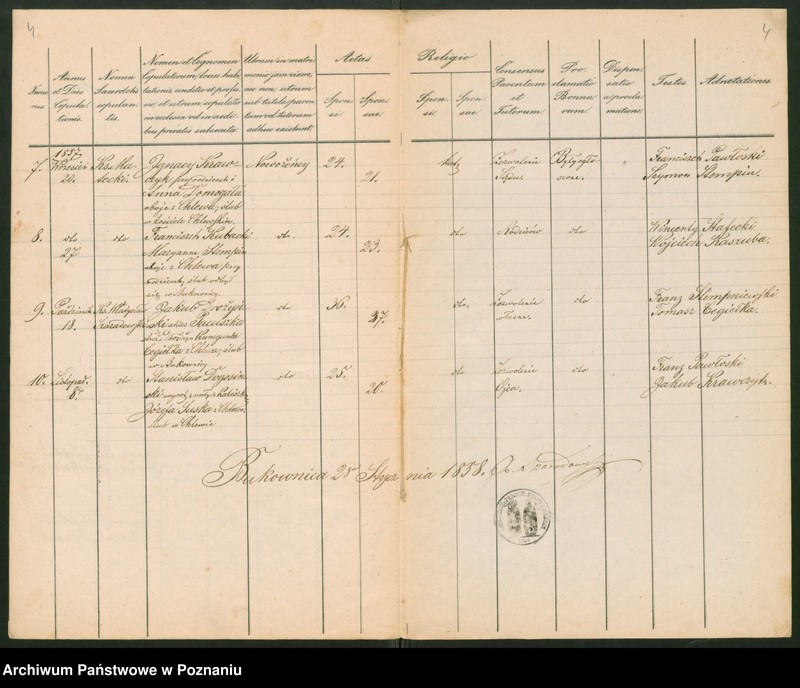 4.
4
Nume
rus
Annus
et Dies
Copula-
tionis.
Nomen
Sacerdotis
copulan-
tis.
Nomen et Cognomen
Copulatorum, locus habi
tationis, conditio et profes-
sio, et utrum copulatio
in ecclesia vel in aedi-
bus privatis
Utrum in matri-
monio jam vixere,
nec non, utrum
sub tutela paren
tum vel tutorum
adhuc existunt.
Aetas
Spon-
si
Spon-
sae.
Religio
Spon-
si
Spon-
sae.
Consensus
Parentum
et
Tutorum.
Pro-
clamatio
Banno-
rum.
Dispen-
satio
a procla-
matione.
Testes
Adnotationes
7.
1887.
Wrzesień
20.
Ks. Ma
Ignacy Kraw-
czyk
Anna Domogała
oboje z Chlewa, ślub
w kościele Chlewskim.
Nowożeńcy
24.
21.
kat.
Zezwolenie
Były ogło
szone.
Franciszek Pawłoski
Szymon Stempin.
8.
do
27
do
Franciszek Kubacki
Maryanna Stempin
oboje z Chlewa
w Bukownicy.
do.
24.
23.
do
Rodziców
do
Wincenty Stafecki
Wojciech Kaszuba.
9.
Październik
18.
Ks. Władysław
Jakub
alias
Cegiełka z Chlewa, ślub
w Bukownicy
do
36.
37.
do.
Zezwolenie
własne.
do
Franz Stempniewski
Tomasz Cegiełka.
10.
Listopad.
8.
do
Stanisław
Józefa Juska z Chlewa,
ślub w Chlewie
do
25.
20.
do
Zezwolenie
Ojca.
do
Franz Pawłoski
Jakub Krawczyk.
Bukownica 25 Stycznia 1888.
Archiwum Państwowe w Poznaniu